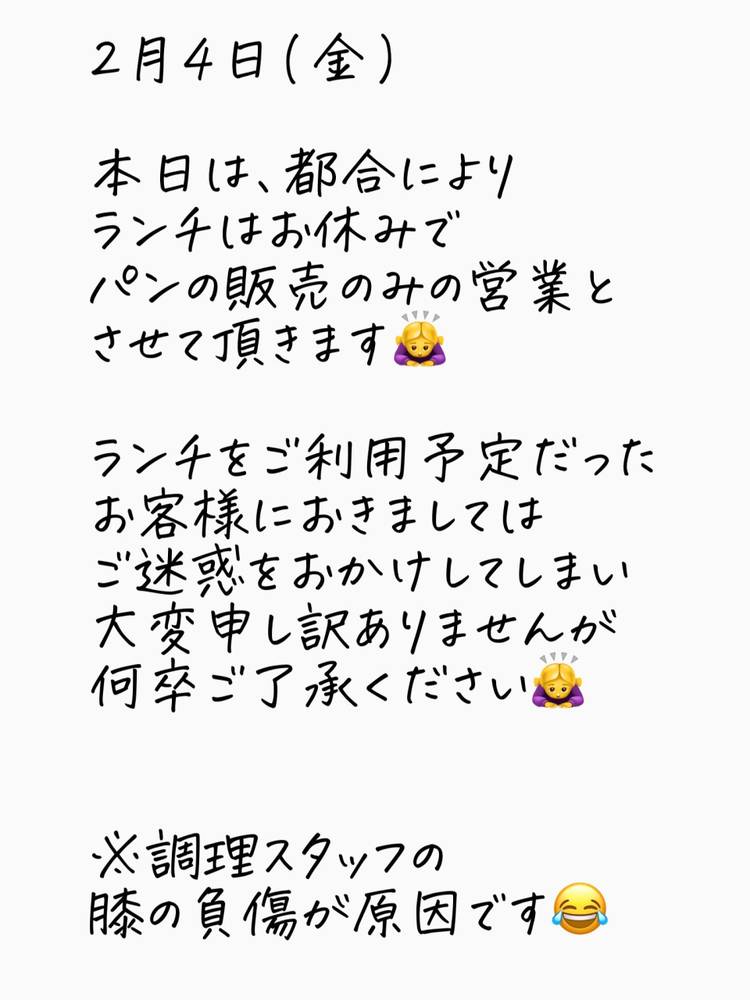 2月4日(金)
本日は、都合により
ランチはお休みで
パンの販売のみの営業と
させて頂きます🙇‍♀️
ランチをご利用予定だった
お客様におきましては
ご迷惑をおかけしてしまい
大変申し訳ありませんが
何卒ご了承ください🙇‍♀️
※調理スタッフの
膝の負傷が原因です😂